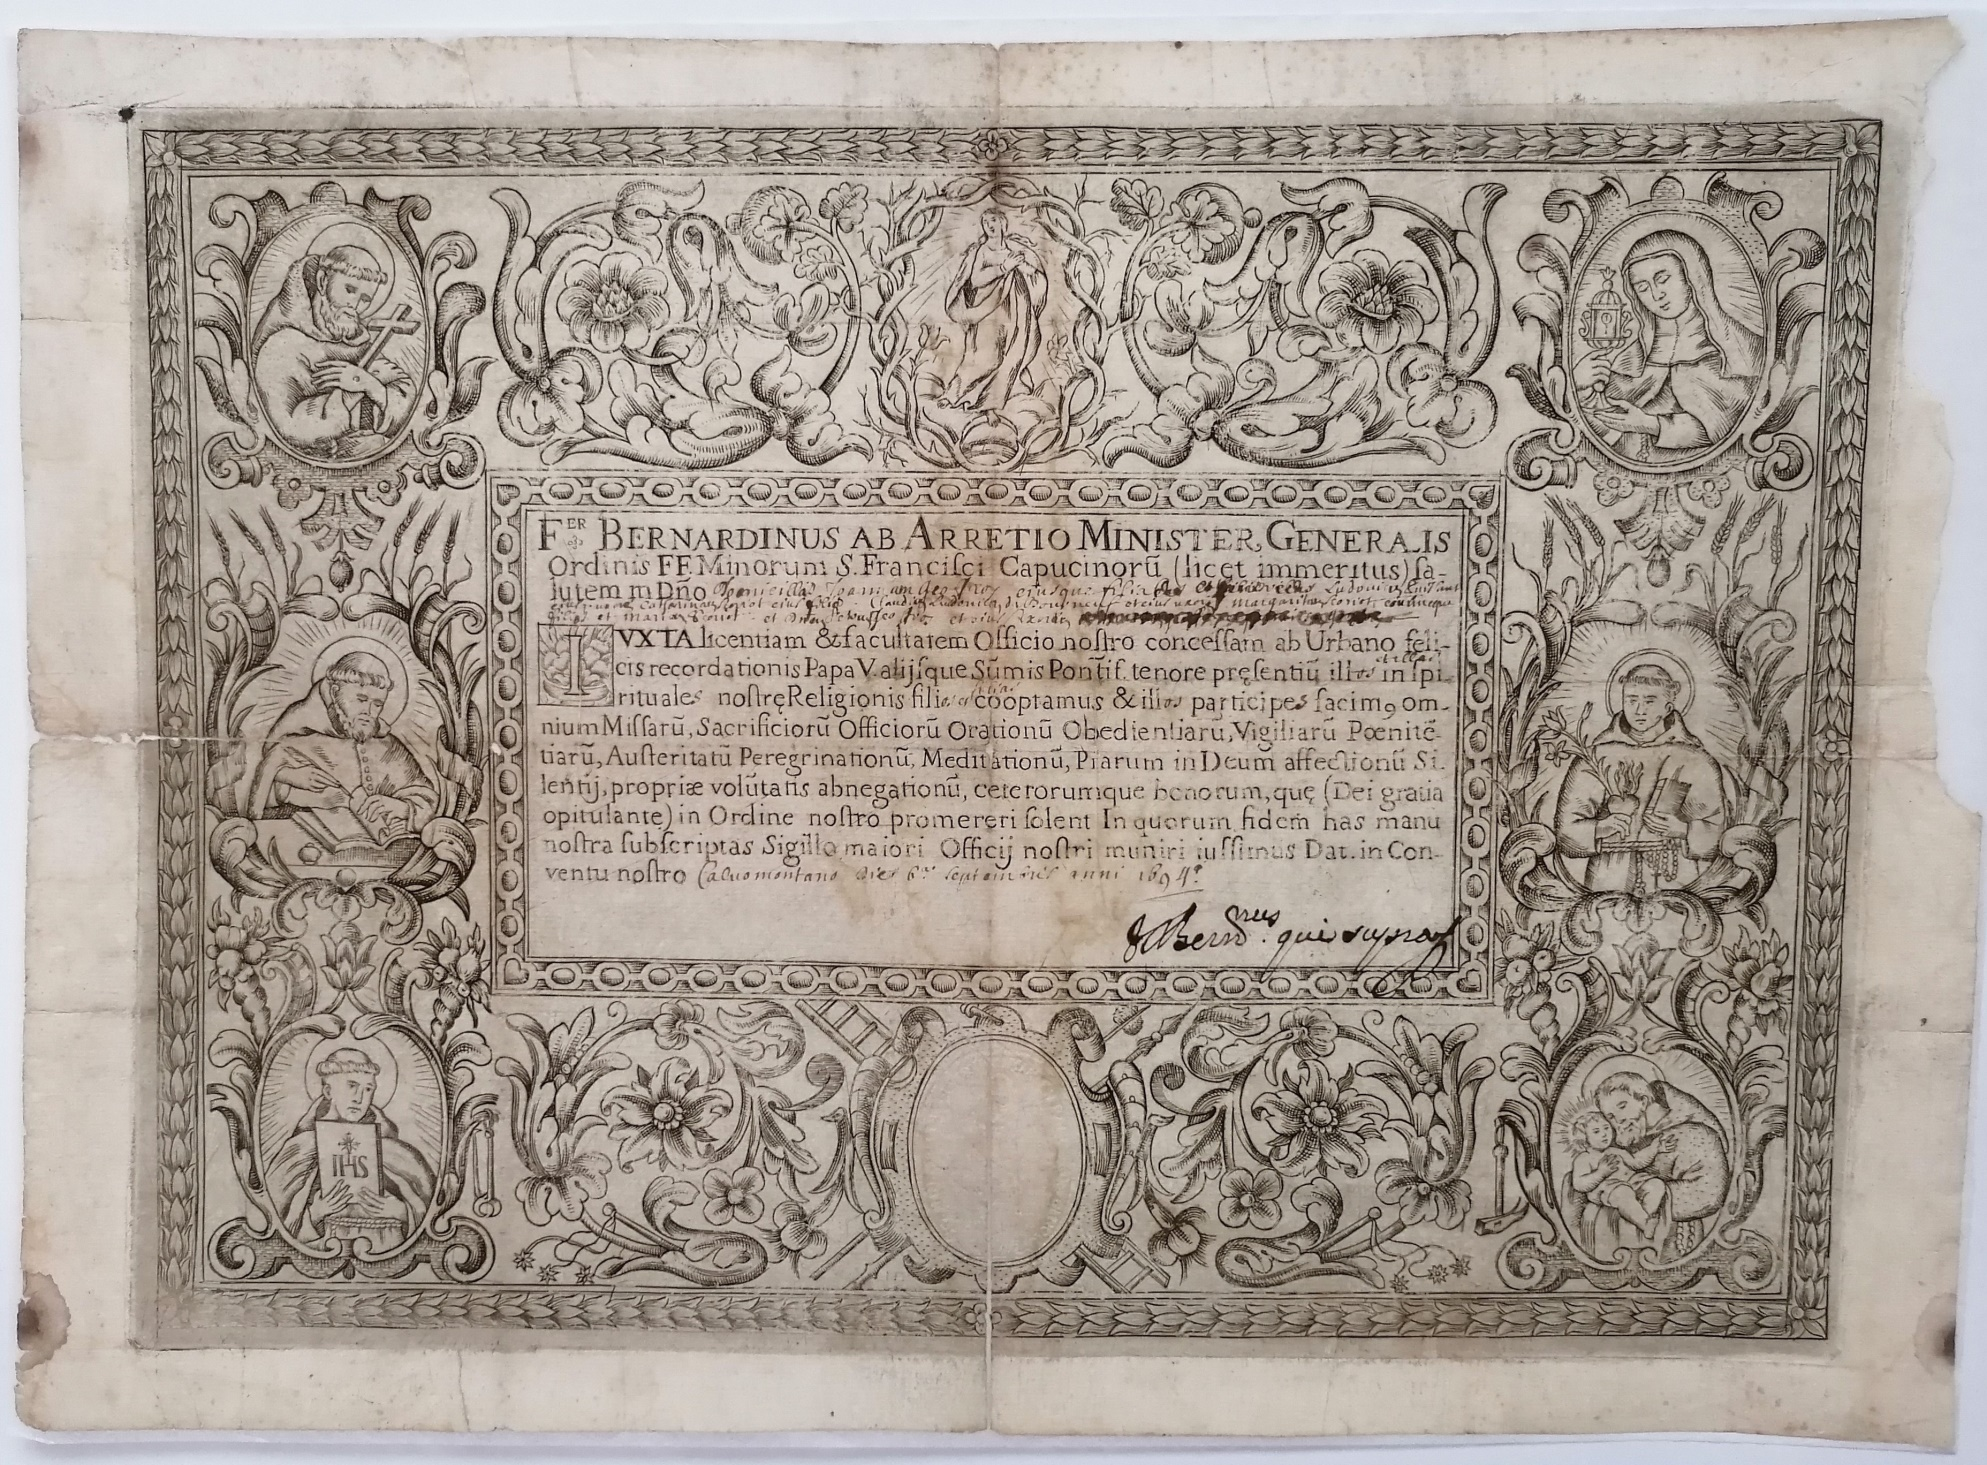 F.ER BERNARDINUS AB ARRETIO MINISTER GENERALIS
Ordinis FF. Minorum S. Francisci Capucinorū (licet immeritus) sa-
lutem in Dño
IVXTA licentiam & facultatem Officio nostro concessam ab Urbano feli-
cis recordationis Papa V. alijsque Sūmis Pontif. tenore pręsentiū illos in spi-
rituales nostrę Religionis filios cooptamus & illos participes facim9 om-
nium Missarū, Sacrificiorū Officiorū Orationū Obedientiarū, Vigiliarū Pœnitē-
tiarū, Austeritatū Peregrinationū, Meditationū, Piarum in Deum affectionū Si-
lentij, propriæ volūtatis abnegationū, ceterorumque bonorum, quę (Dei gratia
opitulante) in Ordine nostro promereri solent In quorum fidem has manu
nostra subscriptas Sigillo maiori Officij nostri muniri iussimus Dat. in Con-
ventu nostro Calvomontano die 6 septembris anni 1694
f Bernd.nus qui supra
IHS